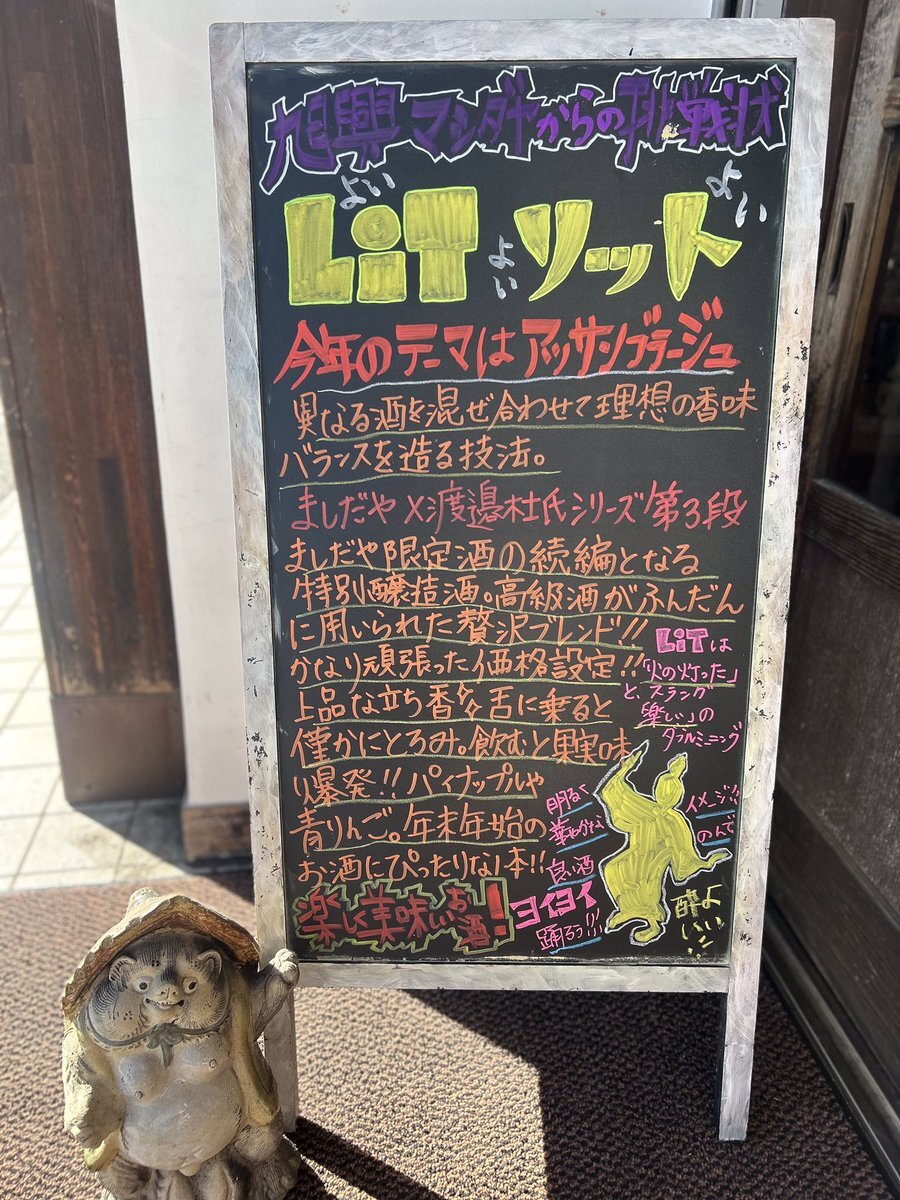 旭興マシダヤからの挑戦状
よい よい
LiT よい ソッド
今年のテーマはアッサンブラージュ
異なる酒を混ぜ合わせて理想の香味
バランスを造る技法。
ましだや×渡邉杜氏シリーズ第3段
ましだや限定酒の続編となる
特別醸造酒。高級酒がふんだん
に用いられた贅沢ブレンド!!
かなり頑張った価格設定!!
上品な立ち香な舌に乗ると
僅かにとろみ。飲むと果実味
爆発!!パイナップルや
青りんご。年末年始の
お酒にぴったりな1本!!
LiTは
「火の灯った」
と、スラング
「楽しい」の
ダブルミーニング
明るく
華やかな
良い酒
イメージ!!
のんで
ヨイヨイ
踊ろう!!!
酔よいい!!
楽しく美味いお酒!